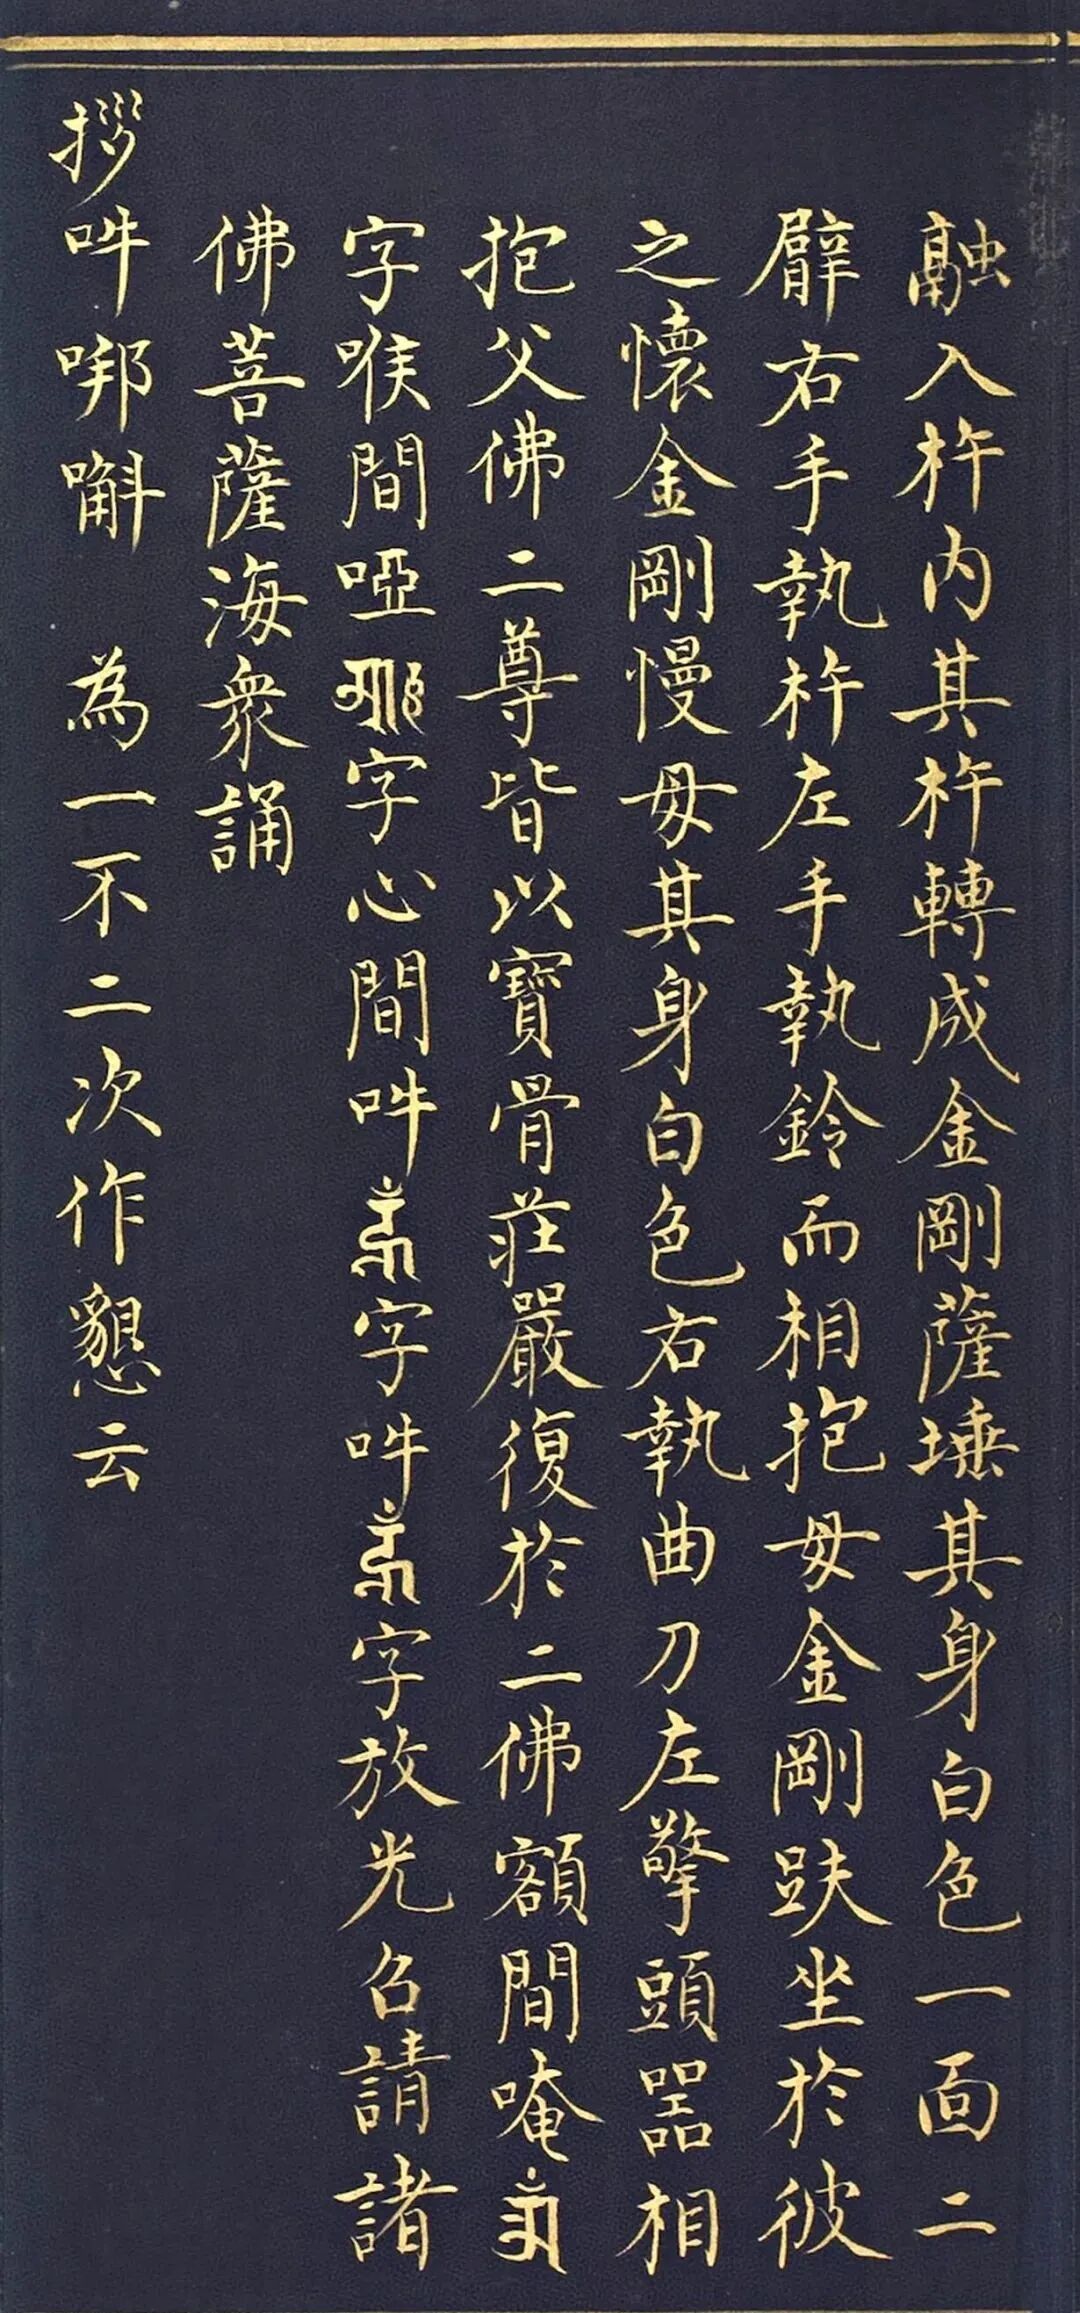 融入杵内其杵轉成金剛薩埵其身白色一面二
臂右手執杵左手執鈴而相抱母金剛趺坐於彼
之懷金剛慢母其身白色右執曲刀左擎頭器相
抱父佛二尊皆以寶骨莊嚴復於二佛額間唵
字喉間啞字心間吽字吽字放光召請諸
佛菩薩海衆誦
拶吽㖿斛 為一不二次作懇云